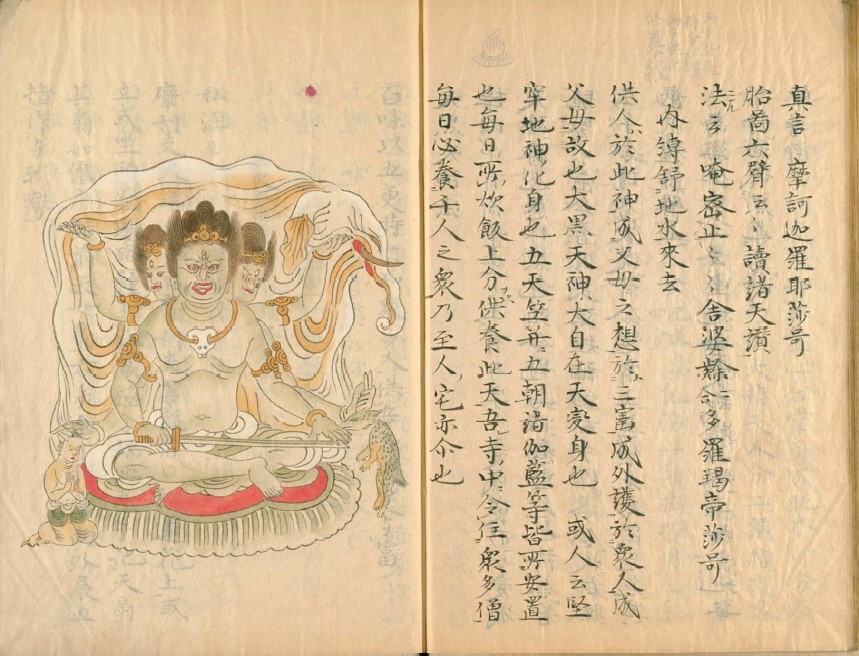 真言 摩訶迦羅耶莎呵
胎啚六臂云々讀諸天讃
法云唵密止々々舍婆隸二合多羅羯帝莎呵
内縛舒地水來去
供人於此神成父母之想於三寳成外護於衆人成
父母故也大黒天神大自在天変身也 或人云堅
牢地神化身也五天竺并五朝諸伽藍等皆所安置
也毎日所炊飯上分供養此天吾寺中令住衆多僧
毎日必養千人之衆乃至人宅亦尒也